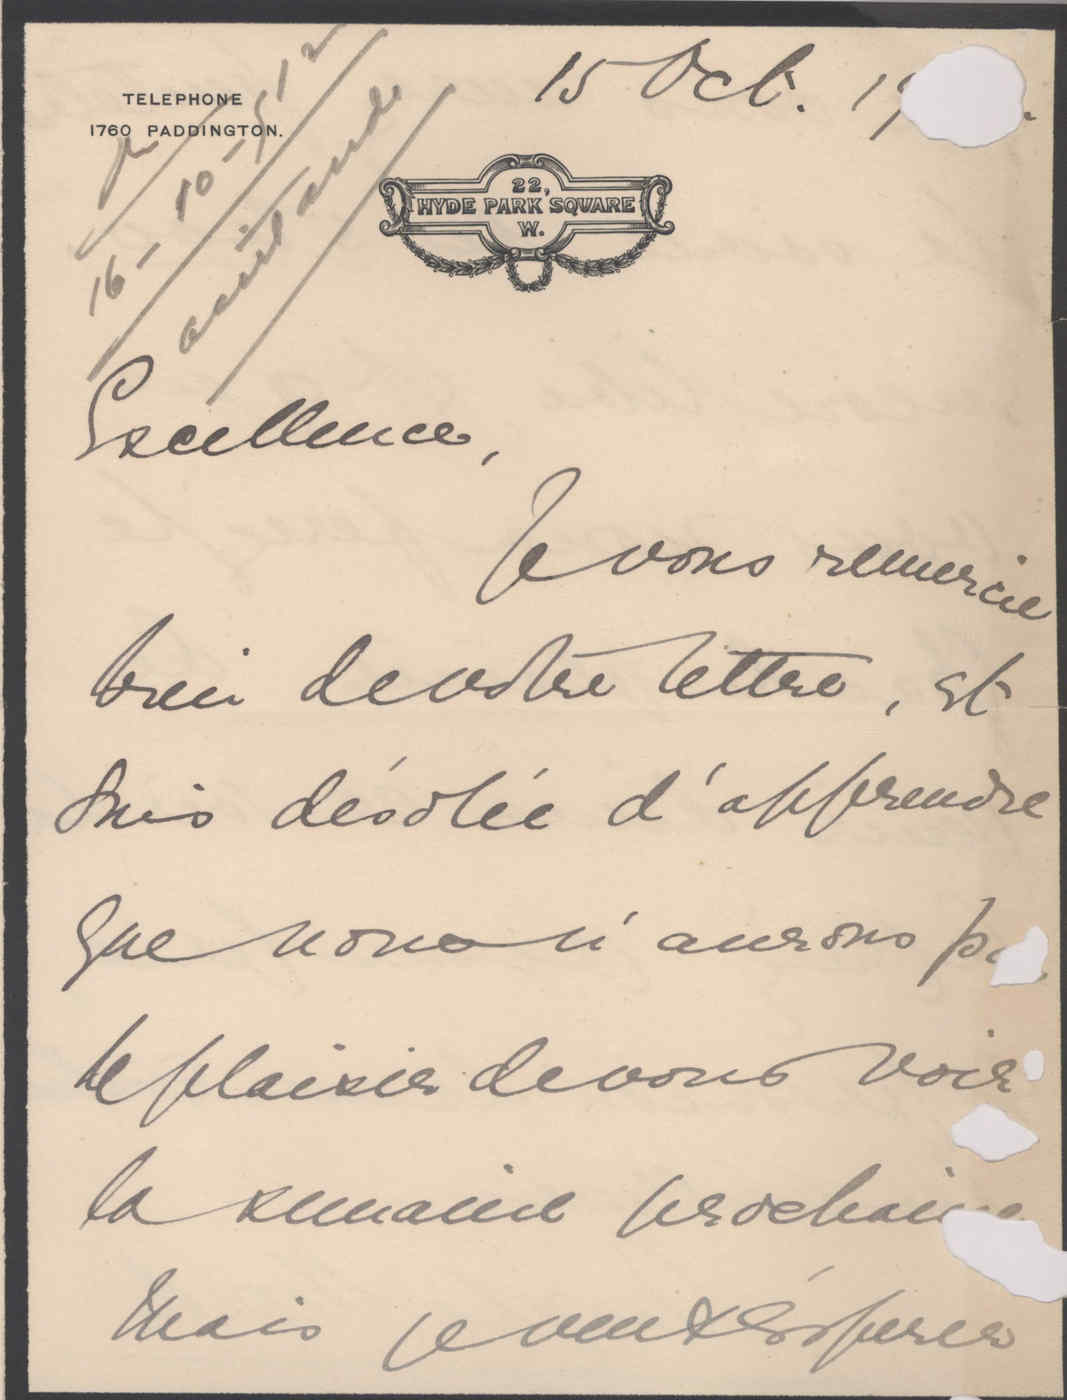 TELEPHONE
1760 PADDINGTON.
15 Oct. 19
16-10-912
22,
HYDE PARK SQUARE
W.
Excellence,
Je vous remercie
bien de votre lettre, et
suis désolée d'apprendre
que nous n'aurons
le plaisir de vous voir
la semaine prochaine
Mais je veux espérer